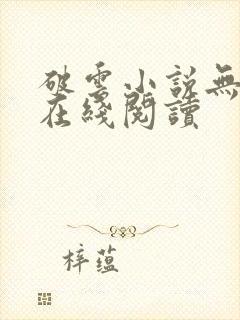 破雲小説無
在綫閱讀
梓蕴